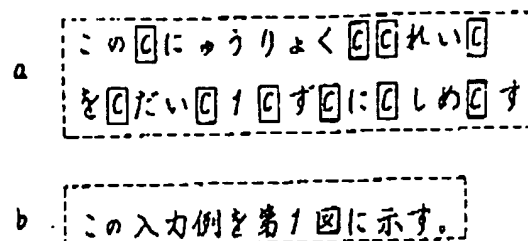 a
この🄲にゅうりょく🄲🄲れい🄲
を🄲だい🄲1🄲ず🄲に🄲しめ🄲す
b
この入力例を第1図に示す。